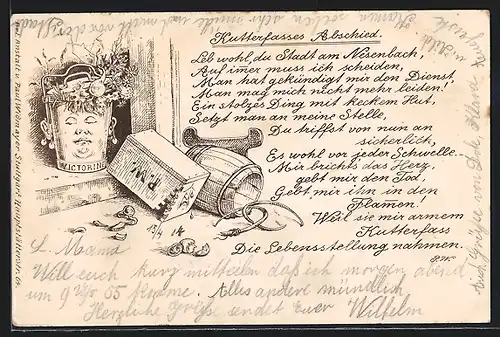 Kutterfasses Abschied.
Leb wohl, du Stadt am Nesenbach,
Auf im̄er muss ich scheiden,
Man hat gekündigt mir den Dienst,
Man mag mich nicht mehr leiden!
Ein stolzes Ding mit keckem Hut,
Setzt man an meine Stelle,
Du triffst von nun an
sicherlich,
Es wohl vor jeder Schwelle.-
Mir brichts das Herz,
gebt mir den Tod,
Gebt mir ihn in den
Flamen!
Weil sie mir armem
Kutterfass
Die Lebensstellung nahmen.
VICTORIN
P.W.
13/4 14
L. Mama
Will euch kurz mitteilen daß ich morgen abend
um 9 Uhr 55 komme. Alles andere mündlich
Herzliche Grüße sendet Euer Wilhelm